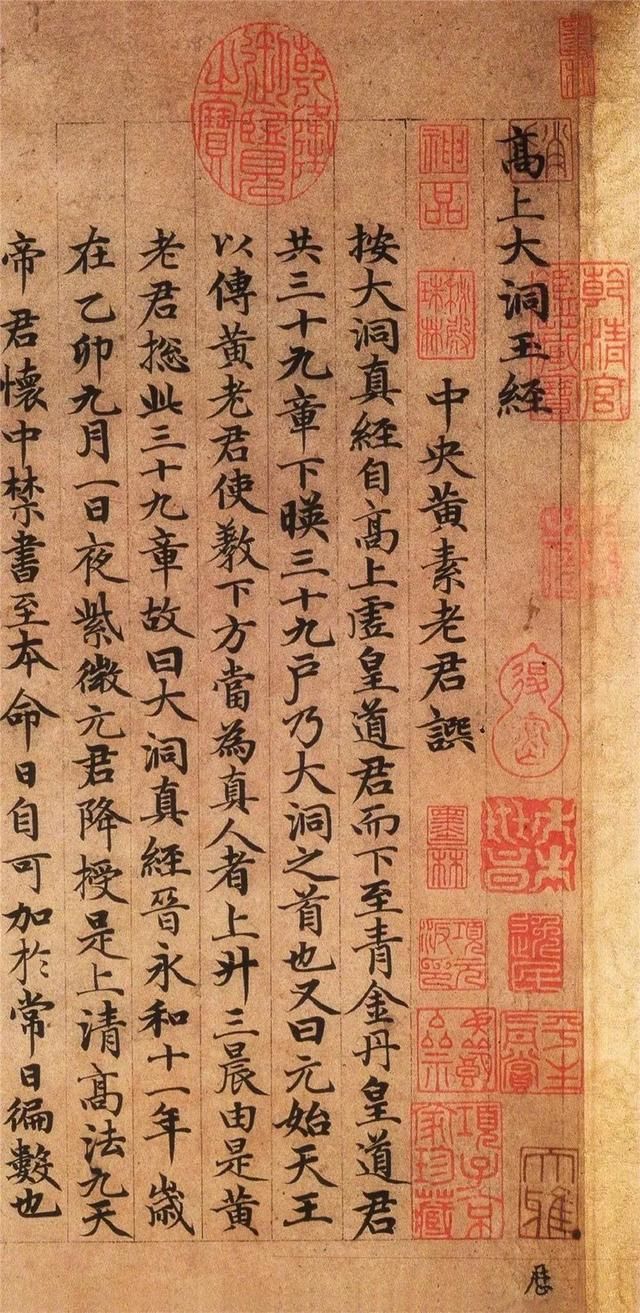 高上大洞玉經
中央黃素老君譔
按大洞真經自高上虛皇道君而下至青金丹皇道君
共三十九章下暎三十九戶乃大洞之首也又曰元始天王
以傳黃老君使教下方當為真人者上升三晨由是黃
老君揔此三十九章故曰大洞真經晉永和十一年歲
在乙卯九月一日夜紫微元君降授是上清高法九天
帝君懷中禁書至本命日自可加於常日徧數也
乾隆御覽之寶
神品
墨林
項子京家珍藏
平生真賞
乾清宮